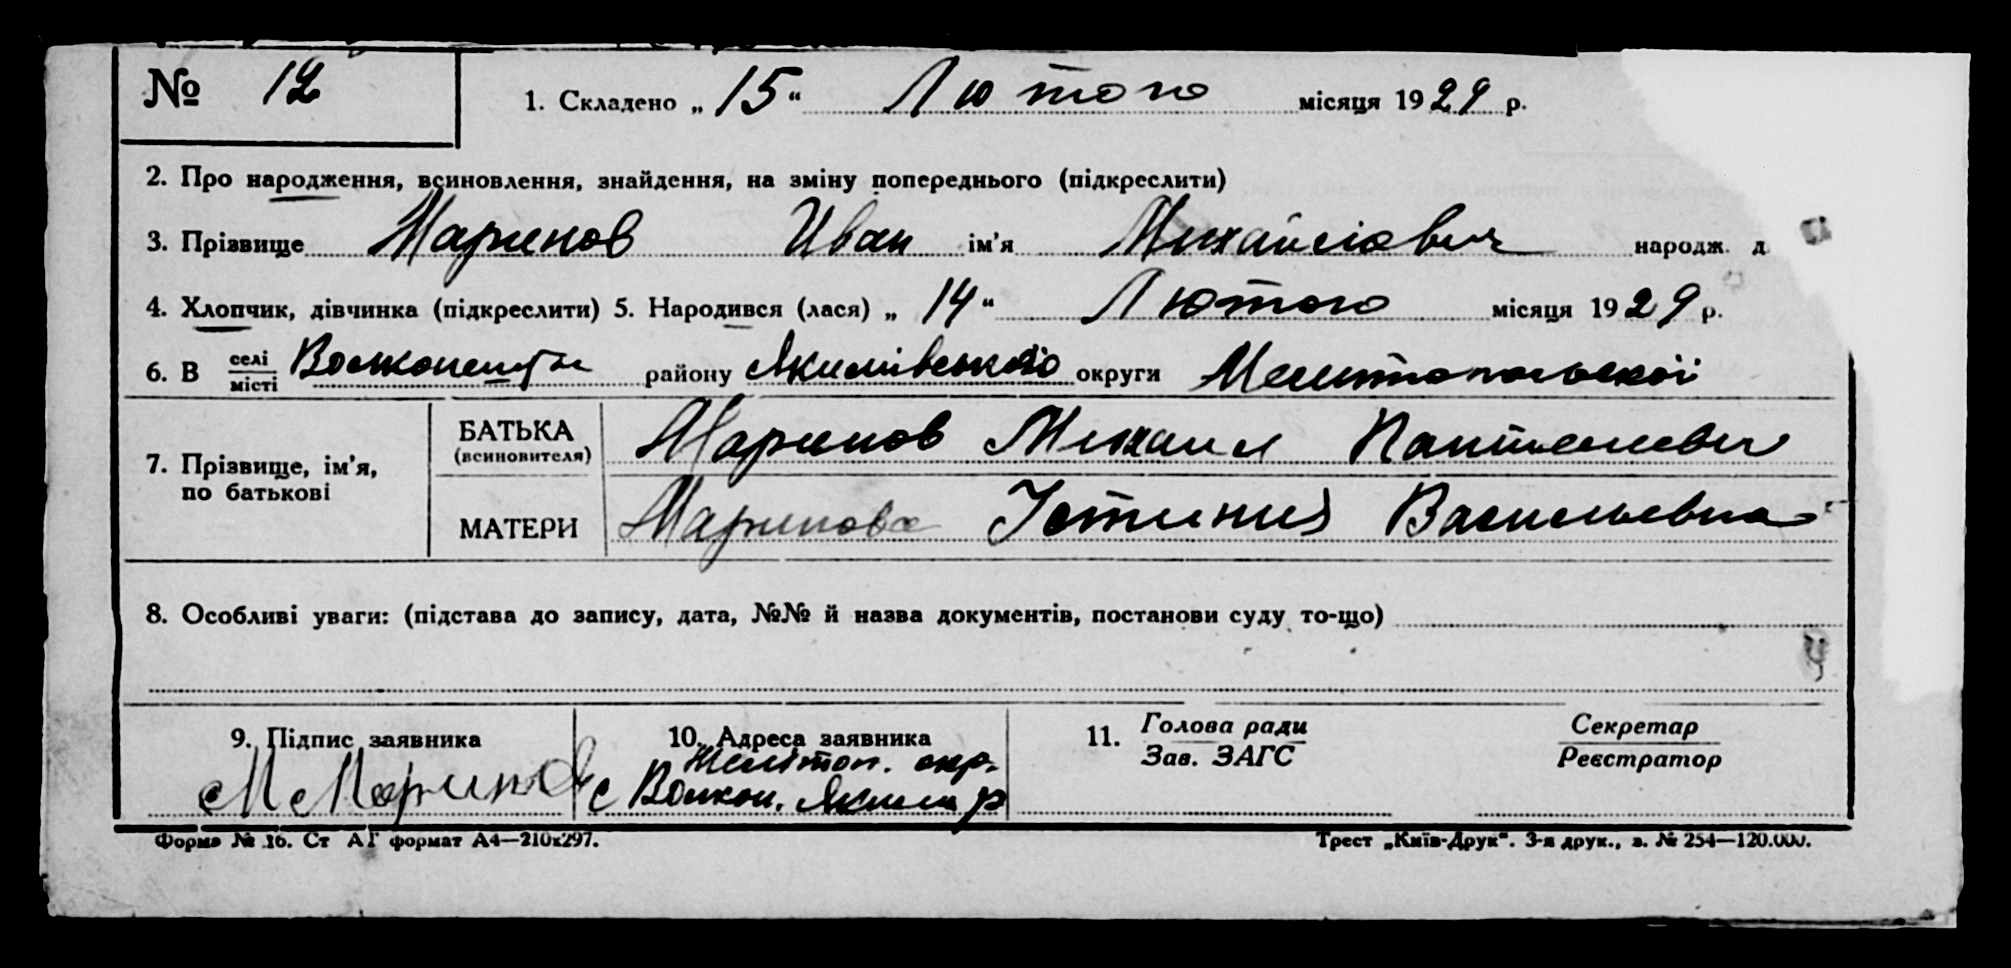 № 12
1. Складено „15“ Лютого місяця 1929 р.
2. Про народження, всиновлення, знайдення, на зміну попереднього (підкреслити)
3. Прізвище Маринов Иван ім’я Михайлович народж. д
4. Хлопчик, дівчинка (підкреслити) 5. Народився (лася) „14“ Лютого місяця 1929 р.
6. В селі
місті району Якимівського округи Мелитопольскої
7. Прізвище, ім’я,
по батькові
БАТЬКА
(всиновителя)
Маринов Михаил Пантелевич
МАТЕРИ Маринова Устиния Васильевна
8. Особливі уваги: (підстава до запису, дата, №№ й назва документів, постанови суду то-що)
9. Підпис заявника
М Марино
10. Адреса заявника
Меліттоп. окр.
с Волкон. Яким р
11. Голова ради
Зав. ЗАГС
Секретар
Реєстратор
Форма № 16. Ст АГ формат А4—210х297.
Трест „Київ-Друк“. 3-я друк., з. № 254—120.000.